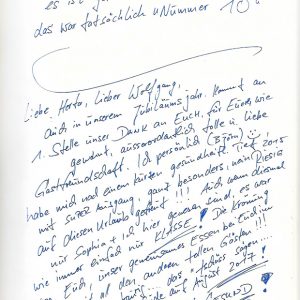 es ist
das war tatsächlich "Nummer 10"
Liebe Herta, Lieber Wolfgang,
auch in unserem Jubiläumsjahr kommt an
1. Stelle unser Dank an Euch, für Eure wie
gewohnt, ausserordentlich tolle u. liebe
Gastfreundschaft. Ich persönlich (Björn)
habe mich nach einem kurzen gesundheit. Tief 2015
mit super Ausgang, ganz besonders, nein RIESIG
auf diesen Urlaub gefreut!!! Auch wenn diesmal
nur Sophia + ich hier gewesen sind, es war
wie immer einfach nur KLASSE! Die Krönung
Euch, unser gemeinsames Essen bei Euch im
mit all den anderen tollen Gästen!!!
das "Tschüs" sagen
Freude auf August 2017!